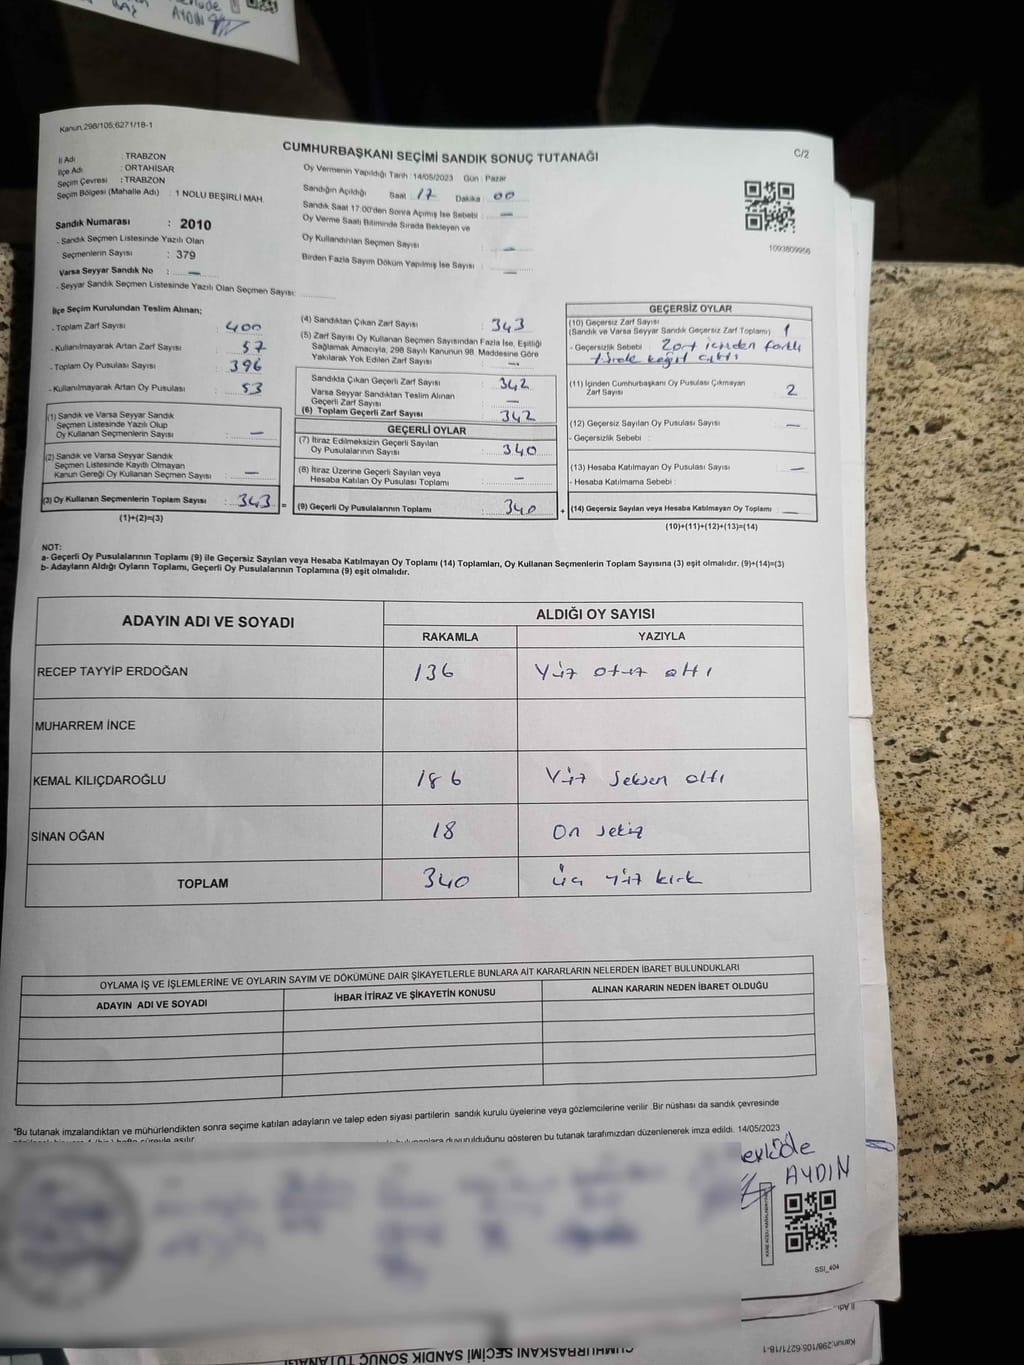 AYDIN
Kanun.298/105;6271/18-1
CUMHURBAŞKANI SEÇİMİ SANDIK SONUÇ TUTANAĞI
C/2
İl Adı : TRABZON
İlçe Adı : ORTAHİSAR
Seçim Çevresi : TRABZON
Seçim Bölgesi (Mahalle Adı) : 1 NOLU BEŞİRLİ MAH.
Sandık Numarası : 2010
- Sandık Seçmen Listesinde Yazılı Olan
Seçmenlerin Sayısı : 379
Varsa Seyyar Sandık No : —
- Seyyar Sandık Seçmen Listesinde Yazılı Olan Seçmen Sayısı:
Oy Vermenin Yapıldığı Tarih : 14/05/2023 Gün : Pazar
Sandığın Açıldığı Saat 17 Dakika 00
Sandık Saat 17:00'den Sonra Açımış İse Sebebi : —
Oy Verme Saati Bitiminde Sırada Bekleyen ve
Oy Kullandırılan Seçmen Sayısı : —
Birden Fazla Sayım Döküm Yapılmış İse Sayısı : —
1093809956
İlçe Seçim Kurulundan Teslim Alınan;
- Toplam Zarf Sayısı : 400
- Kullanılmayarak Artan Zarf Sayısı : 57
- Toplam Oy Pusulası Sayısı : 396
- Kullanılmayarak Artan Oy Pusulası : 53
(1) Sandık ve Varsa Seyyar Sandık
Seçmen Listesinde Yazılı Olup
Oy Kullanan Seçmenlerin Sayısı : —
(2) Sandık ve Varsa Seyyar Sandık
Seçmen Listesinde Kayıtlı Olmayan
Kanun Gereği Oy Kullanan Seçmen Sayısı : —
(3) Oy Kullanan Seçmenlerin Toplam Sayısı : 343 =
(1)+(2)=(3)
(4) Sandıktan Çıkan Zarf Sayısı : 343
(5) Zarf Sayısı Oy Kullanan Seçmen Sayısından Fazla İse, Eşitliği
Sağlamak Amacıyla, 298 Sayılı Kanunun 98. Maddesine Göre
Yakılarak Yok Edilen Zarf Sayısı : —
Sandıkta Çıkan Geçerli Zarf Sayısı : 342
Varsa Seyyar Sandıktan Teslim Alınan
Geçerli Zarf Sayısı : —
(6) Toplam Geçerli Zarf Sayısı : 342
GEÇERLİ OYLAR
(7) İtiraz Edilmeksizin Geçerli Sayılan
Oy Pusulalarının Sayısı : 340
(8) İtiraz Üzerine Geçerli Sayılan veya
Hesaba Katılan Oy Pusulası Toplamı : —
(9) Geçerli Oy Pusulalarının Toplamı : 340 +
GEÇERSİZ OYLAR
(10) Geçersiz Zarf Sayısı
(Sandık ve Varsa Seyyar Sandık Geçersiz Zarf Toplamı) : 1
- Geçersizlik Sebebi : Zarf içinden farklı
türde kağıt çıktı
(11) İçinden Cumhurbaşkanı Oy Pusulası Çıkmayan
Zarf Sayısı : 2
(12) Geçersiz Sayılan Oy Pusulası Sayısı : —
- Geçersizlik Sebebi :
(13) Hesaba Katılmayan Oy Pusulası Sayısı : —
- Hesaba Katılmama Sebebi :
(14) Geçersiz Sayılan veya Hesaba Katılmayan Oy Toplamı : —
(10)+(11)+(12)+(13)=(14)
NOT:
a- Geçerli Oy Pusulalarının Toplamı (9) ile Geçersiz Sayılan veya Hesaba Katılmayan Oy Toplamı (14) Toplamları, Oy Kullanan Seçmenlerin Toplam Sayısına (3) eşit olmalıdır. (9)+(14)=(3)
b- Adayların Aldığı Oyların Toplamı, Geçerli Oy Pusulalarının Toplamına (9) eşit olmalıdır.
ADAYIN ADI VE SOYADI ALDIĞI OY SAYISI
RAKAMLA YAZIYLA
RECEP TAYYİP ERDOĞAN 136 Yüz otuz altı
MUHARREM İNCE
KEMAL KILIÇDAROĞLU 186 Yüz seksen altı
SİNAN OĞAN 18 On sekiz
TOPLAM 340 üç yüz kırk
OYLAMA İŞ VE İŞLEMLERİNE VE OYLARIN SAYIM VE DÖKÜMÜNE DAİR ŞİKAYETLERLE BUNLARA AİT KARARLARIN NELERDEN İBARET BULUNDUKLARI
ADAYIN ADI VE SOYADI İHBAR İTİRAZ VE ŞİKAYETİN KONUSU ALINAN KARARIN NEDEN İBARET OLDUĞU
"Bu tutanak imzalandıktan ve mühürlendikten sonra seçime katılan adayların ve talep eden siyasi partilerin sandık kurulu üyelerine veya gözlemcilerine verilir .Bir nüshası da sandık çevresinde
duyurulduğunu gösteren bu tutanak tarafımızdan düzenlenerek imza edildi. 14/05/2023
AYDIN
SSI_404
İl Adı
Kanun.298/105;6271/18-1
CUMHURBAŞKANI SEÇİMİ SANDIK SONUÇ TUTANAĞI